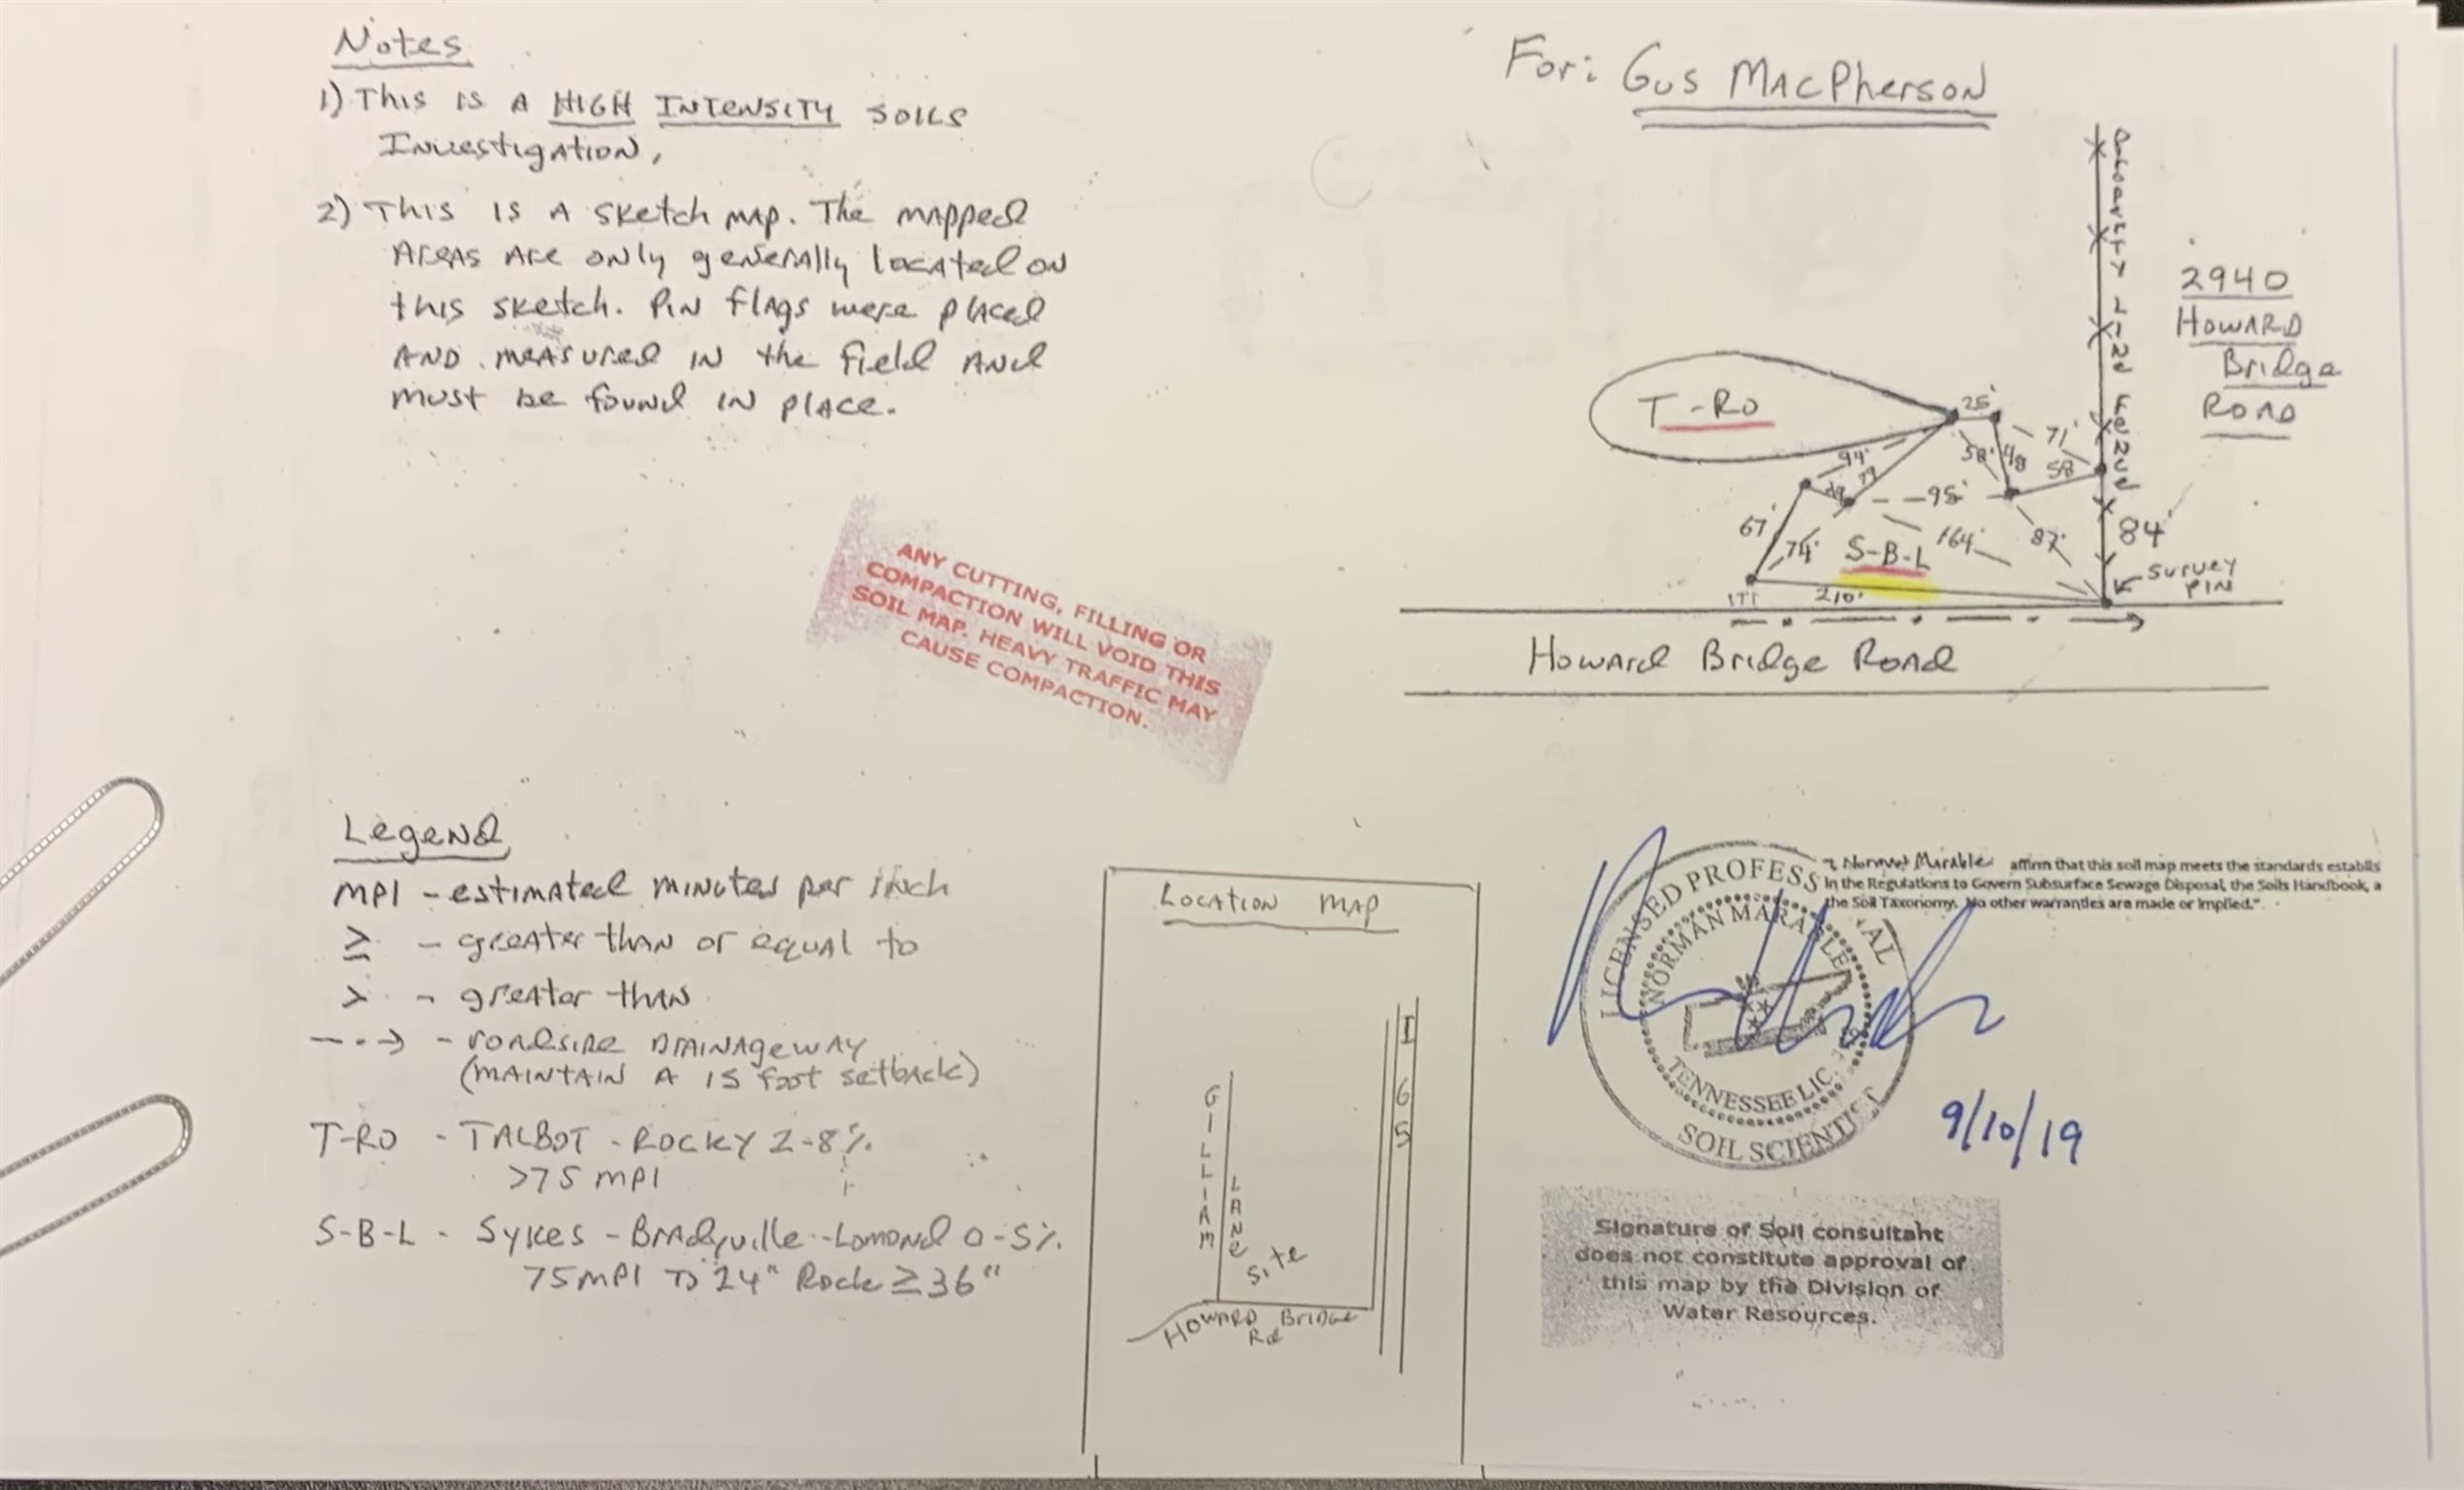 Notes
1) This is A HIGH INTENSITY SOILS
Investigation,
2) This is A sketch map. The mapped
Areas Are only generally located on
this sketch. Pin flags were placed
And measured in the field And
must be found in place.
For: Gus MacPherson
Property Line Fence
2940
Howard
Bridge
Road
T-Ro
25'
71'
94'
79
58'
48
58
95'
67'
74'
S-B-L
164'
87'
84'
Survey
Pin
210'
Howard Bridge Road
ANY CUTTING, FILLING OR
COMPACTION WILL VOID THIS
SOIL MAP. HEAVY TRAFFIC MAY
CAUSE COMPACTION.
Legend
MPI - estimated minutes per inch
≥ - greater than or equal to
> - greater than
- roadside drainageway
(MAINTAIN A 15 foot setback)
T-RO - TALBOT - ROCKY 2-8%
>75 MPI
S-B-L - Sykes - Bradyville - Lomond 0-5%
75 MPI To 24" Rock ≥ 36"
LOCATION MAP
I 65
GILLIAM
LANE
Site
HOWARD Bridge
Rd
LICENSED PROFESS AL
SOIL SCIENTIST
NORMAN MARABLE
TENNESSEE LIC.
affirm that this soil map meets the standards establis
In the Regulations to Govern Subsurface Sewage Disposal, the Soils Handbook, a
the Soil Taxonomy. No other warranties are made or implied."
9/10/19
Signature of Soil consultant
does not constitute approval of
this map by the Division of
Water Resources.